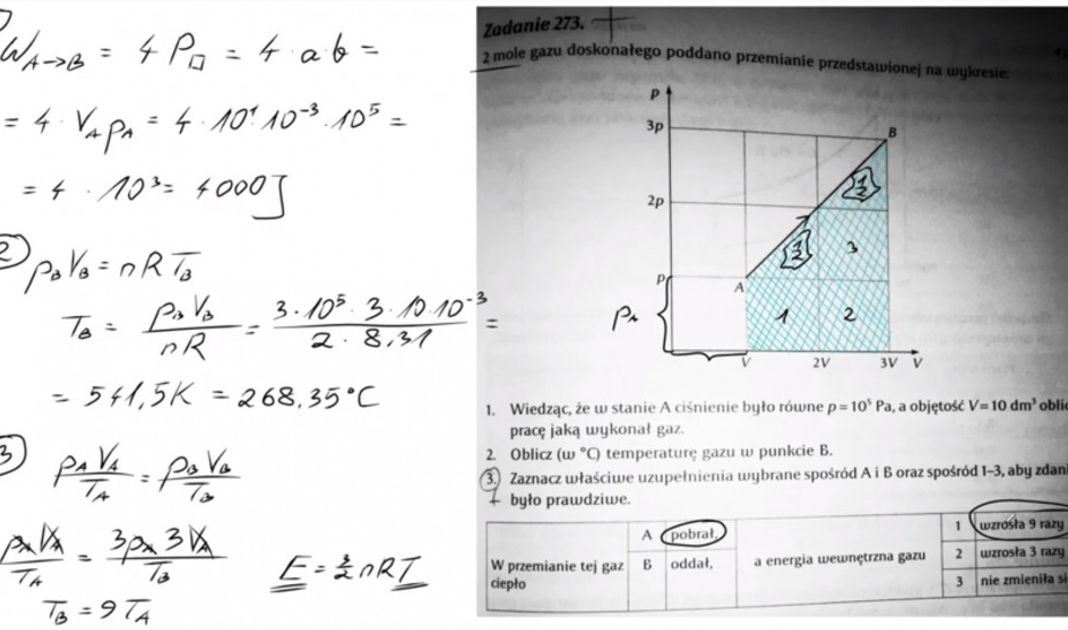 W_A→B = 4 P□ = 4 · a b =
= 4 · V_A p_A = 4 · 10¹ · 10⁻³ · 10⁵ =
= 4 · 10³ = 4000 J
2
p_B V_B = n R T_B
T_B = p_B V_B / nR = 3·10⁵ · 3·10·10⁻³ / 2 · 8,31 =
= 541,5K = 268,35°C
3
p_A V_A / T_A = p_B V_B / T_B
p_A V_A / T_A = 3p_A 3V_A / T_B
E = 3/2 nRT
T_B = 9 T_A
Zadanie 273.
2 mole gazu doskonałego poddano przemianie przedstawionej na wykresie:
p
3p
B
1/2
2p
1/2
3
p
A
p_A
1
2
V
2V
3V
V
1. Wiedząc, że w stanie A ciśnienie było równe p = 10⁵ Pa, a objętość V = 10 dm³ obli
pracę jaką wykonał gaz.
2. Oblicz (w °C) temperaturę gazu w punkcie B.
3. Zaznacz właściwe uzupełnienia wybrane spośród A i B oraz spośród 1–3, aby zdani
było prawdziwe.
W przemianie tej gaz
ciepło
A pobrał,
B oddał,
a energia wewnętrzna gazu
1 wzrosła 9 razy
2 wzrosła 3 razy
3 nie zmieniła si